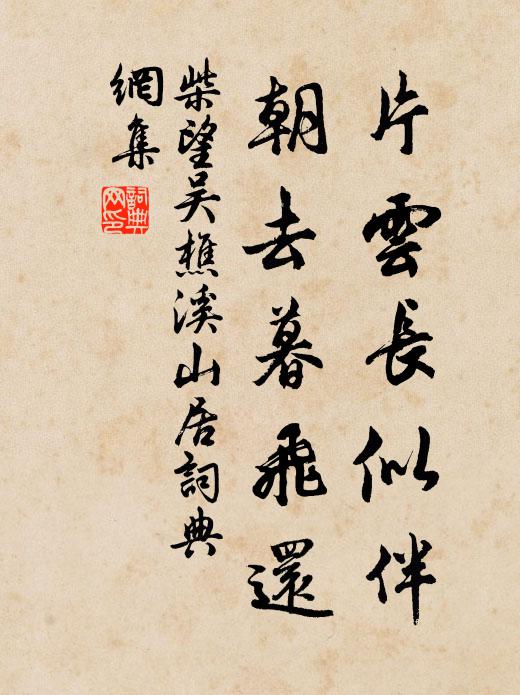 片雲長似伴
朝去暮飛還
柴望吴樵溪山居詞典
網集
詞典網印